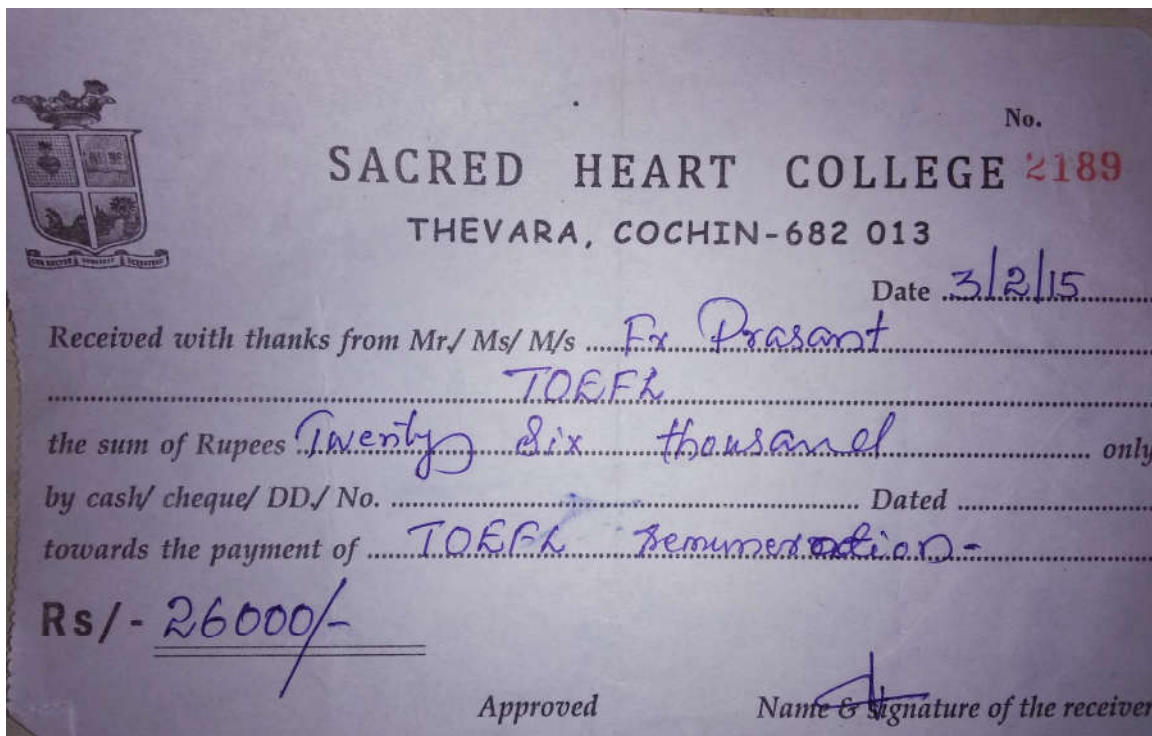 No.
SACRED HEART COLLEGE 2189
THEVARA, COCHIN-682 013
Date 3/2/15
Received with thanks from Mr./ Ms/ M/s Fr Prasant
TOEFL
the sum of Rupees Twenty Six thousand only
by cash/ cheque/ DD./ No. Dated
towards the payment of TOEFL remuneration-
Rs/- 26000/-
Approved Name & signature of the receiver